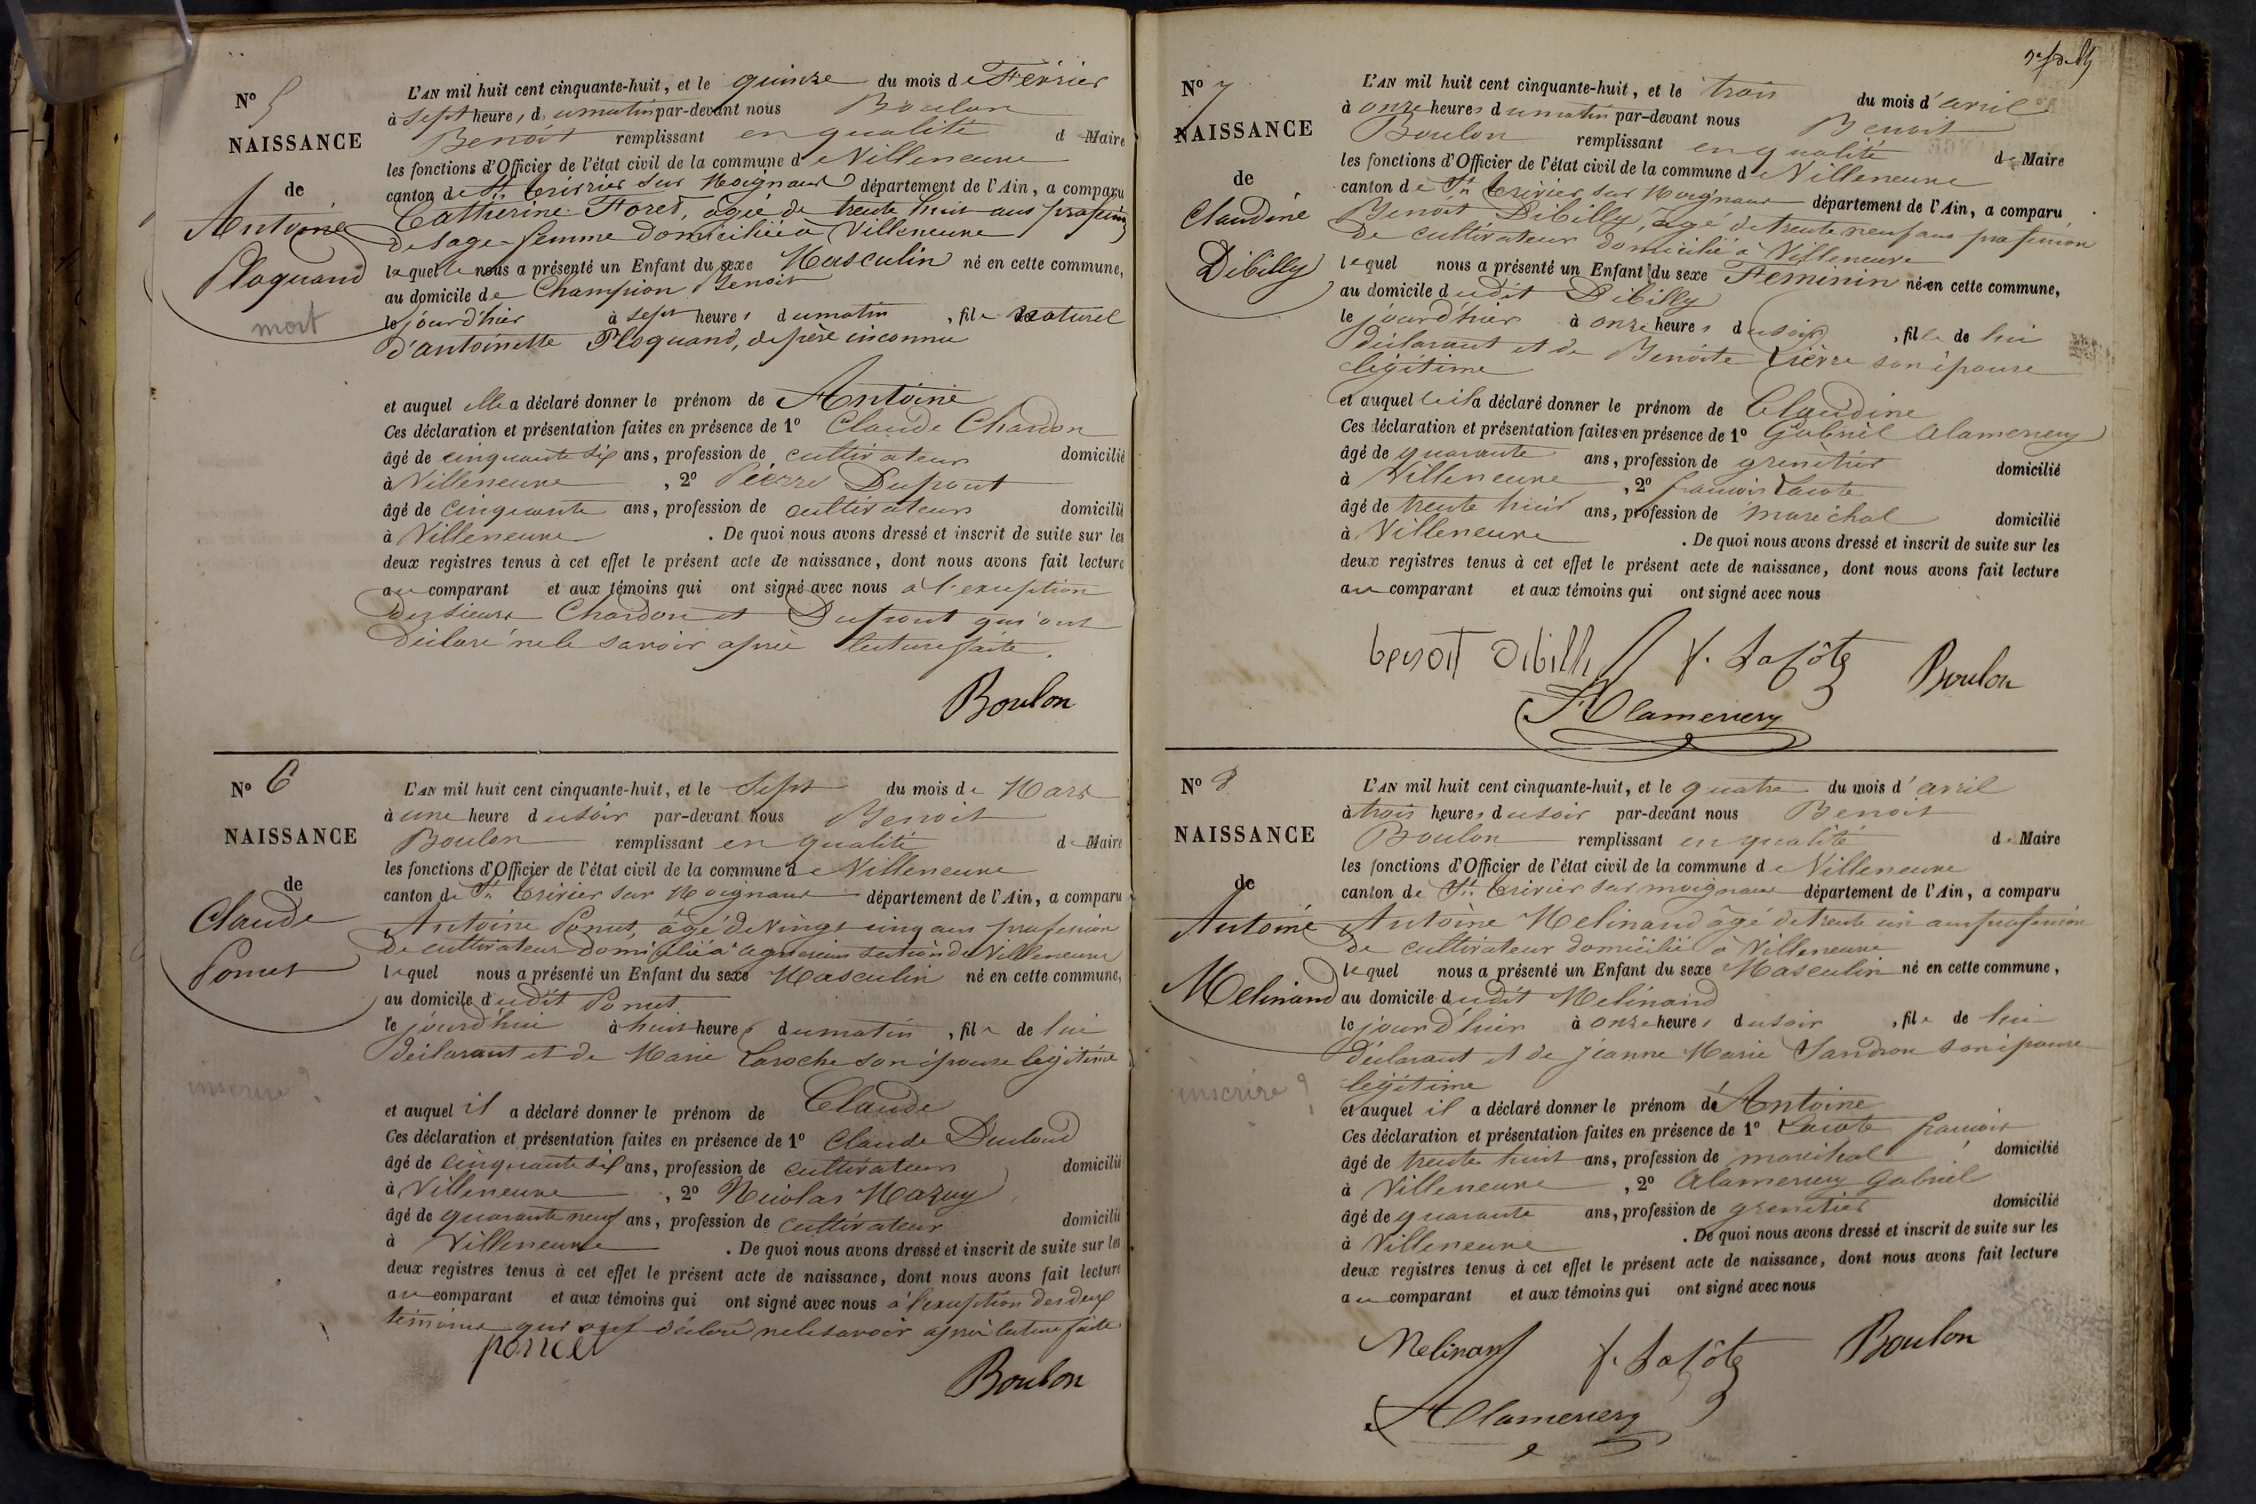 N° 5
NAISSANCE
de
Antoine
Ploquand
mort
L'AN mil huit cent cinquante-huit, et le quinze du mois de Février
à sept heures, du matin par-devant nous Boulon
Benoit remplissant en qualité d Maire
les fonctions d'Officier de l'état civil de la commune de Villeneuve
canton de St Trivier sur Moignans département de l'Ain, a comparu
Catherine Foret, âgée de trente huit ans profession
de sage-femme domiciliée à Villeneuve
laquelle nous a présenté un Enfant du sexe Masculin né en cette commune,
au domicile de Champion Benoit
le jourd'hier à sept heures du matin, fils naturel
d'antoinette Ploquand, de père inconnu
et auquel elle a déclaré donner le prénom de Antoine
Ces déclaration et présentation faites en présence de 1° Claude Chardon
âgé de cinquante six ans, profession de cultivateur domicilié
à Villeneuve, 2° Pierre Dupont
âgé de cinquante ans, profession de cultivateur domicilié
à Villeneuve. De quoi nous avons dressé et inscrit de suite sur les
deux registres tenus à cet effet le présent acte de naissance, dont nous avons fait lecture
au comparant et aux témoins qui ont signé avec nous à l'exception
des sieurs Chardon et Dupont qui ont
déclaré ne le savoir après lecture faite.
Boulon
N° 6
NAISSANCE
de
Claude
Ponnet
inscrire ?
L'AN mil huit cent cinquante-huit, et le Sept du mois de Mars
à une heure du soir par-devant nous Benoit
Boulon remplissant en qualité de Maire
les fonctions d'Officier de l'état civil de la commune de Villeneuve
canton de St Trivier sur Moignans département de l'Ain, a comparu
Antoine Ponnet, âgé de vingt cinq ans profession
de cultivateur domicilié à agnereins section de Villeneuve
lequel nous a présenté un Enfant du sexe Masculin né en cette commune,
au domicile dudit Ponnet
le jourd'hui à huit heures du matin, fils de lui
déclarant et de Marie Laroche son épouse légitime
et auquel il a déclaré donner le prénom de Claude
Ces déclaration et présentation faites en présence de 1° Claude Ducloud
âgé de cinquante six ans, profession de cultivateur domicilié
à Villeneuve, 2° Nicolas Mazuy
âgé de quarante neuf ans, profession de cultivateur domicilié
à Villeneuve. De quoi nous avons dressé et inscrit de suite sur les
deux registres tenus à cet effet le présent acte de naissance, dont nous avons fait lecture
au comparant et aux témoins qui ont signé avec nous à l'exception des deux
témoins qui ont déclaré ne le savoir après lecture faite
Boulon
N° 7
NAISSANCE
de
Claudine
Dibilly
L'AN mil huit cent cinquante-huit, et le trois du mois d'avril
à onze heures du matin par-devant nous Benoit
Boulon remplissant en qualité de Maire
les fonctions d'Officier de l'état civil de la commune de Villeneuve
canton de St Trivier sur Moignans département de l'Ain, a comparu
Benoit Dibilly, âgé de trente neuf ans profession
de cultivateur domicilié à Villeneuve
lequel nous a présenté un Enfant du sexe Féminin né en cette commune,
au domicile dudit Dibilly
le jourd'hier à onze heures du soir, fille de lui
déclarant et de Benoite Lièvre son épouse
légitime
et auquel il a déclaré donner le prénom de Claudine
Ces déclaration et présentation faites en présence de 1° Gabriel Alamercery
âgé de quarante ans, profession de grenetier domicilié
à Villeneuve, 2° françois Lacote
âgé de trente huit ans, profession de maréchal domicilié
à Villeneuve. De quoi nous avons dressé et inscrit de suite sur les
deux registres tenus à cet effet le présent acte de naissance, dont nous avons fait lecture
au comparant et aux témoins qui ont signé avec nous
benoit Dibilly f. Lacôte Boulon
Alamercery
N° 8
NAISSANCE
de
Antoine
Melinand
inscrire ?
L'AN mil huit cent cinquante-huit, et le quatre du mois d'avril
à trois heures du soir par-devant nous Benoit
Boulon remplissant en qualité de Maire
les fonctions d'Officier de l'état civil de la commune de Villeneuve
canton de St Trivier sur moignans département de l'Ain, a comparu
Antoine Melinand âgé de trente un ans profession
de cultivateur domicilié à Villeneuve
lequel nous a présenté un Enfant du sexe Masculin né en cette commune,
au domicile dudit Melinand
le jourd'hier à onze heures du soir, fils de lui
déclarant et de jeanne Marie Sandron son épouse
légitime
et auquel il a déclaré donner le prénom de Antoine
Ces déclaration et présentation faites en présence de 1° Lacote françois
âgé de trente huit ans, profession de maréchal domicilié
à Villeneuve, 2° Alamercery Gabriel
âgé de quarante ans, profession de grenetier domicilié
à Villeneuve. De quoi nous avons dressé et inscrit de suite sur les
deux registres tenus à cet effet le présent acte de naissance, dont nous avons fait lecture
au comparant et aux témoins qui ont signé avec nous
Melinand f. Lacôte Boulon
Alamercery